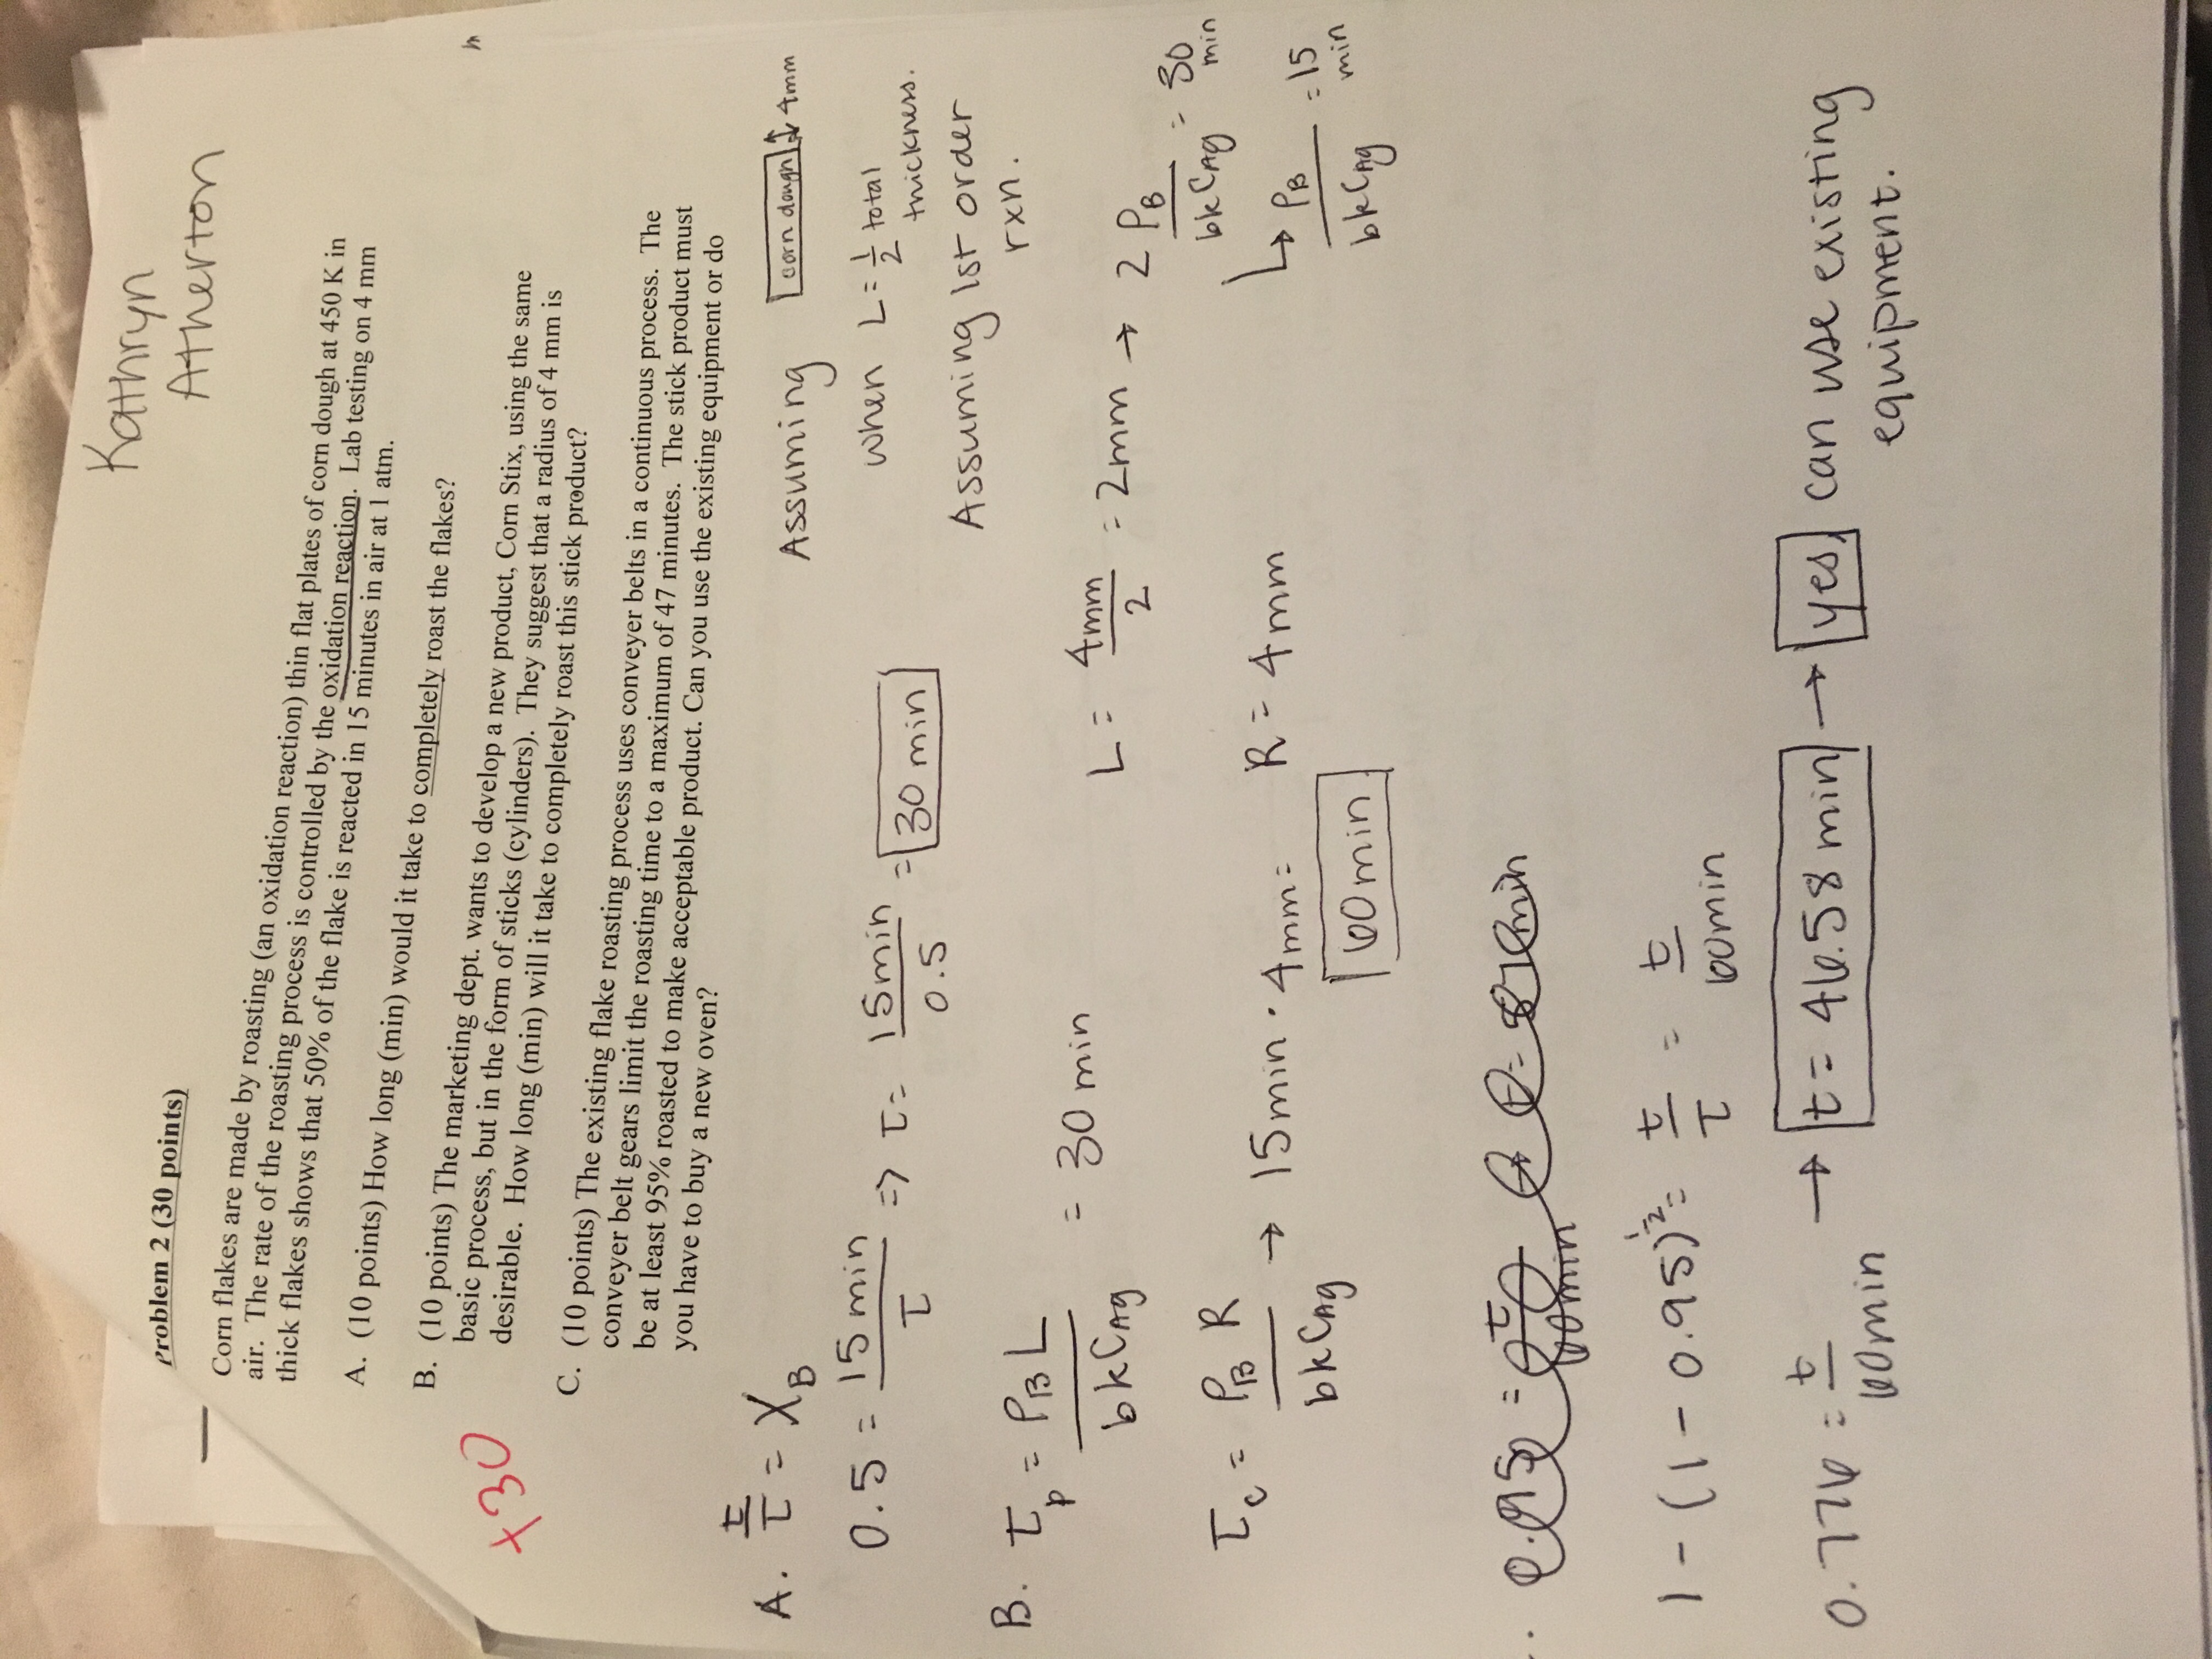 Kathryn
Atherton
Problem 2 (30 points)
Corn flakes are made by roasting (an oxidation reaction) thin flat plates of corn dough at 450 K in
air. The rate of the roasting process is controlled by the oxidation reaction. Lab testing on 4 mm
thick flakes shows that 50% of the flake is reacted in 15 minutes in air at 1 atm.
A. (10 points) How long (min) would it take to completely roast the flakes?
B. (10 points) The marketing dept. wants to develop a new product, Corn Stix, using the same
basic process, but in the form of sticks (cylinders). They suggest that a radius of 4 mm is
desirable. How long (min) will it take to completely roast this stick product?
+30
C. (10 points) The existing flake roasting process uses conveyer belts in a continuous process. The
conveyer belt gears limit the roasting time to a maximum of 47 minutes. The stick product must
be at least 95% roasted to make acceptable product. Can you use the existing equipment or do
you have to buy a new oven?
A. t/τ = X_B
Assuming corn dough ↕ 4mm
when L = 1/2 total
thickness.
0.5 = 15 min/τ => τ = 15min/0.5 = 30 min
Assuming 1st order
rxn.
B. τ_p = ρ_B L/bkC_Ag = 30 min
L = 4mm/2 = 2mm → 2 ρ_B/bkC_Ag = 30 min
τ_c = ρ_B R/bkC_Ag → 15min · 4mm = 60min
R = 4mm
↳ ρ_B/bkC_Ag = 15 min
0.95 = t/60min
1 - (1 - 0.95)^1/2 = t/τ = t/60min
0.776 = t/60min → t = 46.58 min → yes, can use existing
equipment.